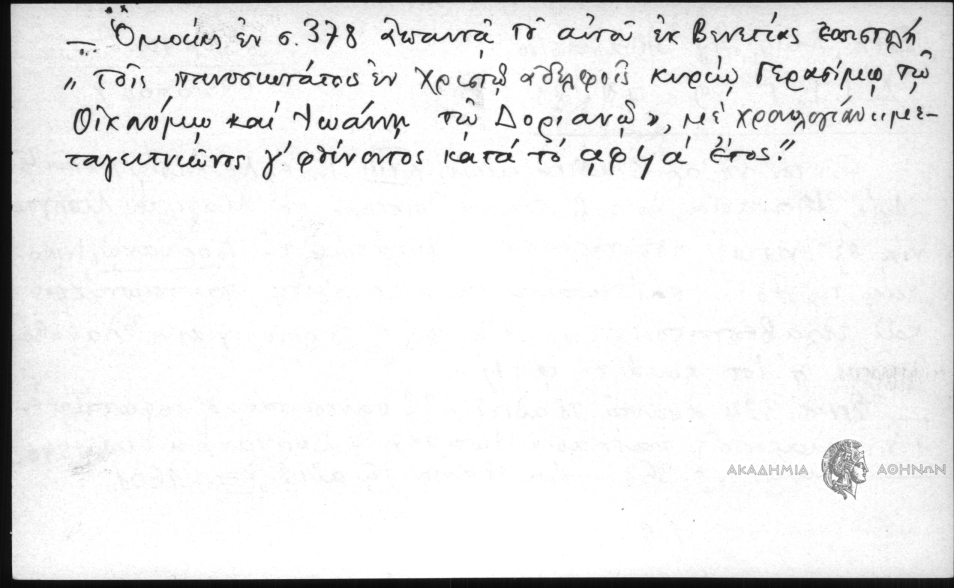 — Ὁμοίως ἐν σ. 378 ἀπαντᾷ τοῦ αὐτοῦ ἐκ Βενετίας ἐπιστολή
„ τοῖς πανοσιωτάτοις ἐν Χριστῷ ἀδελφοῖς κυρίῳ Γερασίμῳ τῷ
Οἰκονόμῳ καί Ἰωάννῃ τῷ Δοριανῷ», μέ χρονολογίαν „με-
ταγειτνιῶνος γ' φθίνοντος κατά τό αφϟα' ἔτος."
ΑΚΑΔΗΜΙΑ ΑΘΗΝΩΝ